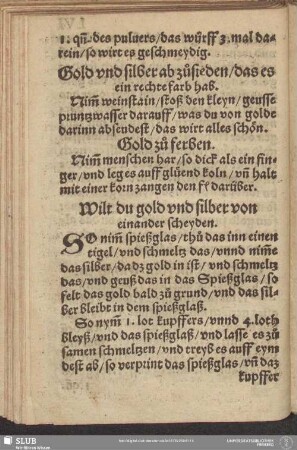 1. qñ. des puluers/das würff 3. mal da-
rein/so wirt es geschmeydig.
Gold vnd silber ab zůsieden/das es
ein rechte farb hab.
Nim̃ weinstain/stoß den kleyn/geusse
pruntzwasser darauff/was du von golde
darinn absendest/das wirt alles schön.
Gold zů ferben.
Nim̃ menschen har/so dick als ein fin-
ger/vnd leg es auff glüend koln/vñ halt
mit einer korn zangen den fl darüber.
Wilt du gold vnd silber von
einander scheyden.
SO nim̃ spießglas/thů das inn einen
tigel/vnd schmeltz das/vnnd nim̃e
das silber/da dz gold in ist/vnd schmeltz
das/vnd geuß das in das Spießglas/so
felt das gold bald zů grund/vnd das sil-
ber bleibt in dem spießglaß.
So nym̃ 1. lot kupffers/vnnd 4. loth
bleyß/vnd das spießglaß/vnd lasse es zů
samen schmeltzen/vnd treyb es auff eym
dest ab/so verprint das spießglas/vñ daz
kupffer
SLUB
Wir führen Wissen.
UNIVERSITÄTSBIBLIOTHEK
FREIBERG